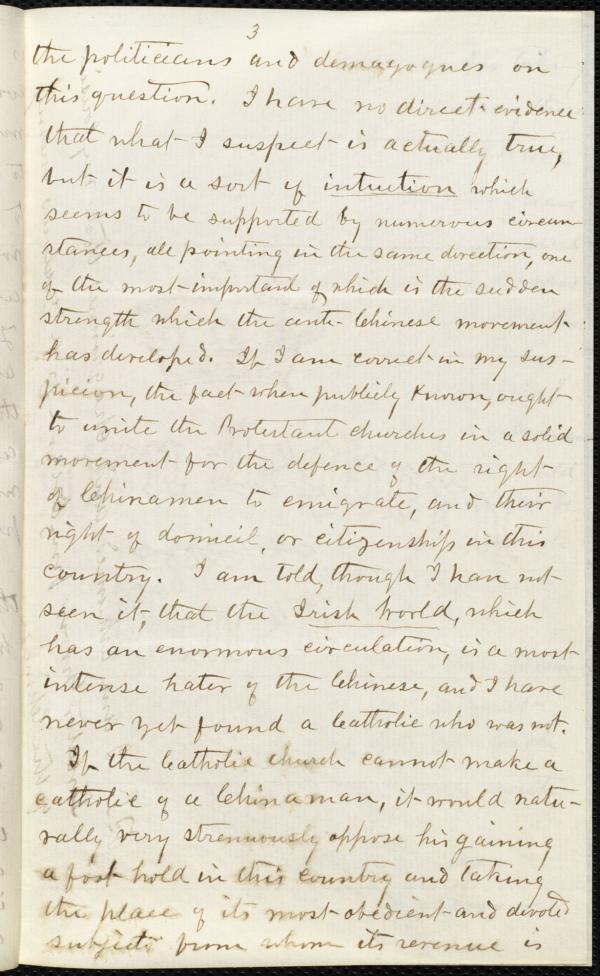 3
the politicians and demagogues on
this question. I have no direct evidence
that what I suspect is actually true,
but it is a sort of intuition which
seems to be supported by numerous circum-
stances, all pointing in the same direction, one
of the most important of which is the sudden
strength which the anti-Chinese movement
has developed. If I am correct in my sus-
picion, the fact when publicly known, ought
to unite the Protestant churches in a solid
movement for the defence of the right
of Chinamen to emigrate, and their
right of domicil, or citizenship in this
country. I am told, though I have not
seen it, that the Irish World, which
has an enormous circulation, is a most
intense hater of the Chinese, and I have
never yet found a Catholic who was not.
If the Catholic church cannot make a
catholic of a Chinaman, it would natu-
rally very strenuously oppose his gaining
a foot hold in this country and taking
the place of its most obedient and devoted
subjects from whom its revenue is